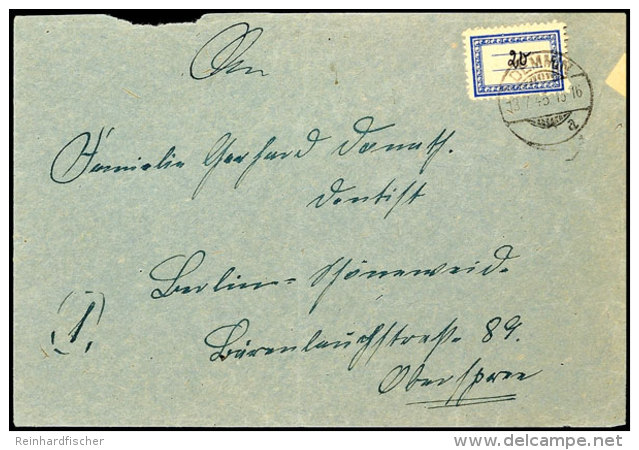 20
DEMMIN
13.7.45.15-16
a
An
Familie Gerhard Donath.
Dentist
Berlin-Schöneweid.
Bärenlauchstraße 89.
Oberspree
(1)
Reinhardfischer
delcampe.net